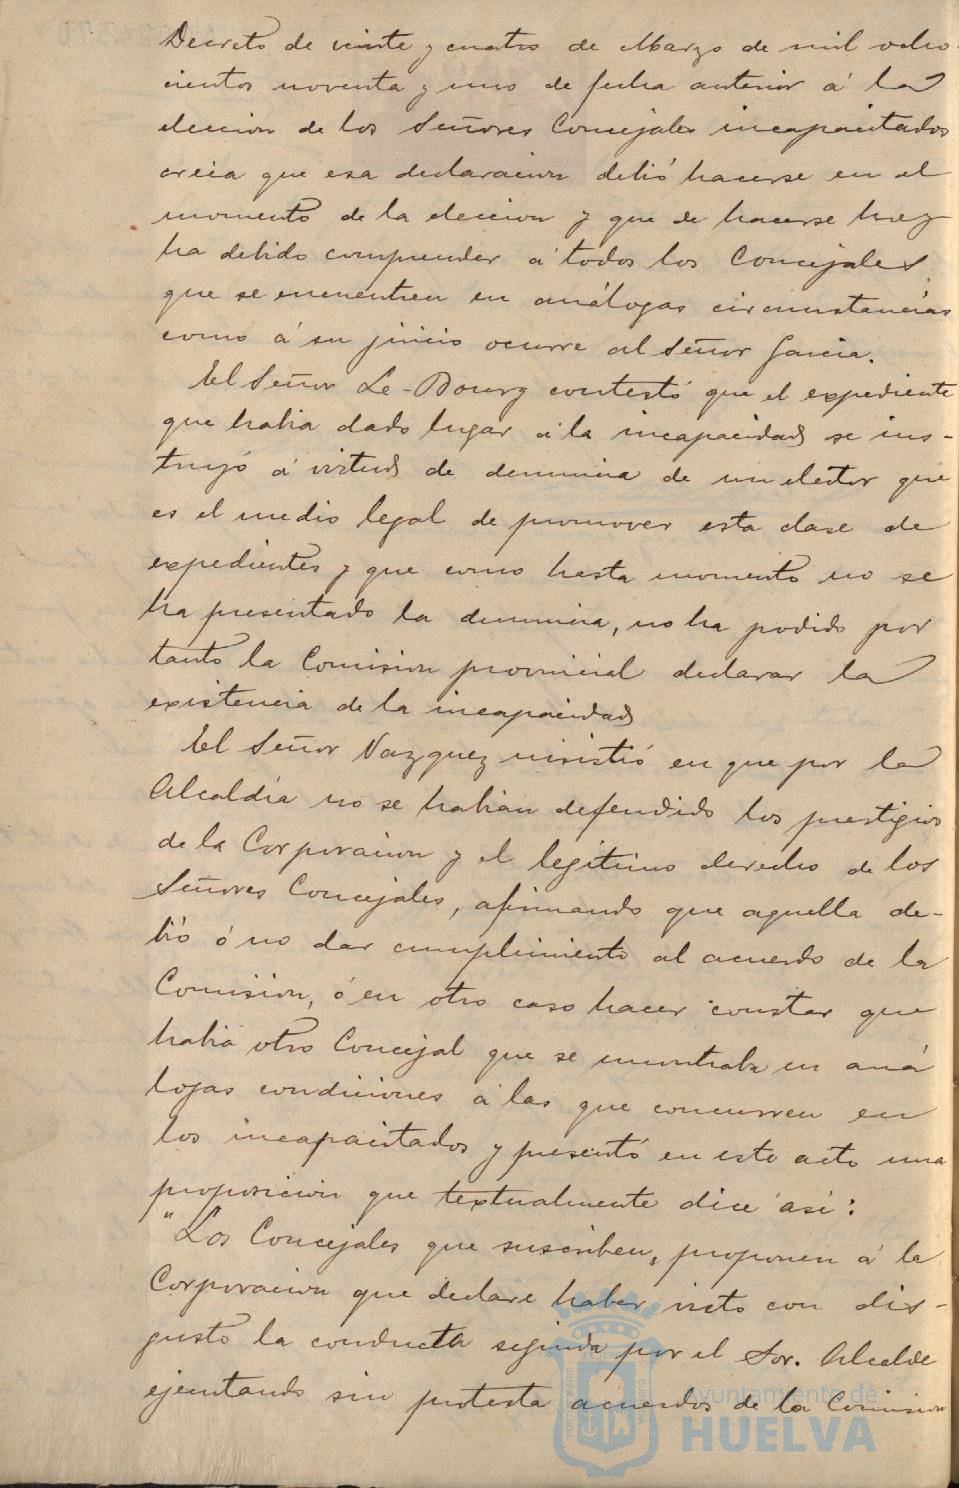 Decreto de veinte y cuatro de Marzo de mil ocho-
cientos noventa y uno de fecha anterior á la
eleccion de los Señores Concejales incapacitados
creia que esa declaracion debió hacerse en el
momento de la eleccion y que de hacerse hoy
ha debido comprender á todos los Concejales
que se encuentren en análogas circunstancias
como á su juicio ocurre al Señor Garcia.
El Señor Le-Bourg contestó que el expediente
que habia dado lugar á la incapacidad se ins-
truyó á virtud de denuncia de un elector que
es el medio legal de promover esta clase de
expedientes y que como hasta momento no se
ha presentado la denuncia, no ha podido por
tanto la Comision provincial declarar la
existencia de la incapacidad
El Señor Vazquez insistió en que por la
Alcaldía no se habian defendido los prestigios
de la Corporacion y el legitimo derecho de los
Señores Concejales, afirmando que aquella de-
bió ó no dar cumplimiento al acuerdo de la
Comision, ó en otro caso hacer constar que
habia otro Concejal que se encontraba en aná
logas condiciones á las que concurren en
los incapacitados y presentó en este acto una
proposicion que textualmente dice asi:
"Los Concejales que suscriben, proponen á la
Corporacion que declare haber visto con dis-
gusto la conducta seguida por el Sor. Alcalde
ejecutando sin protesta acuerdos de la Comision
Ayuntamiento de
HUELVA